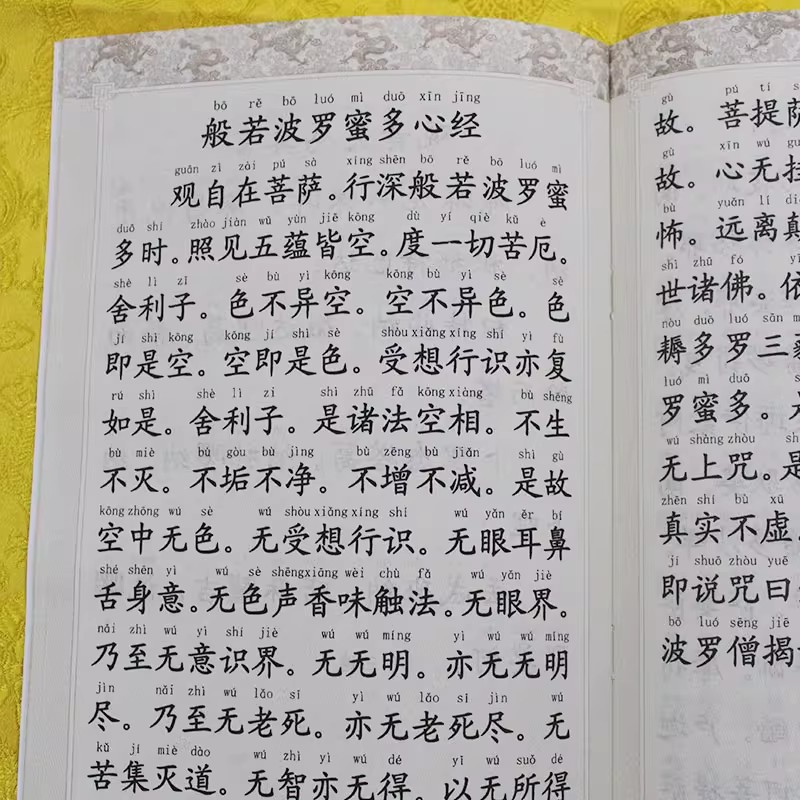 bō rě bō luó mì duō xīn jīng
般若波罗蜜多心经
guān zì zài pú sà xíng shēn bō rě bō luó mì
观自在菩萨。行深般若波罗蜜
duō shí zhào jiàn wǔ yùn jiē kōng dù yí qiè kǔ è
多时。照见五蕴皆空。度一切苦厄。
shè lì zǐ sè bù yì kōng kōng bù yì sè sè
舍利子。色不异空。空不异色。色
jí shì kōng kōng jí shì sè shòu xiǎng xíng shí yì fù
即是空。空即是色。受想行识亦复
rú shì shè lì zi shì zhū fǎ kōng xiàng bù shēng
如是。舍利子。是诸法空相。不生
bù miè bù gòu bù jìng bù zēng bù jiǎn shì gù
不灭。不垢不净。不增不减。是故
kōng zhōng wú sè wú shòu xiǎng xíng shí wú yǎn ěr bí
空中无色。无受想行识。无眼耳鼻
shé shēn yì wú sè shēng xiāng wèi chù fǎ wú yǎn jiè
舌身意。无色声香味触法。无眼界。
nǎi zhì wú yì shí jiè wú wú míng yì wú wú míng
乃至无意识界。无无明。亦无无明
jìn nǎi zhì wú lǎo sǐ yì wú lǎo sǐ jìn wú
尽。乃至无老死。亦无老死尽。无
kǔ jí miè dào wú zhì yì wú dé yǐ wú suǒ dé
苦集灭道。无智亦无得。以无所得
gù pú tí s
故。菩提萨
gù xīn wú gu
故。心无挂
bù yuǎn lí di
怖。远离
shì zhū fó yī
世诸佛。依
nòu duō luó sān m
耨多罗三藐
luó mì duō s
罗蜜多。
wú shàng zhòu sh
无上咒。是
zhēn shí bù xū
真实不虚。
jí shuō zhòu yuē
即说咒曰
bō luó sēng jiē
波罗僧揭